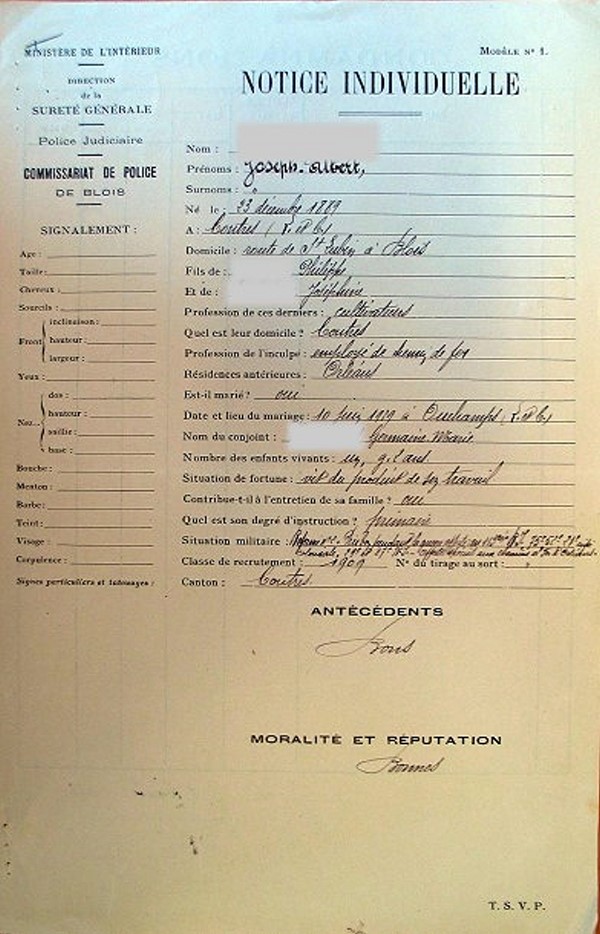 MINISTÈRE DE L'INTÉRIEUR
DIRECTION
de la
SURETÉ GÉNÉRALE
Police Judiciaire
COMMISSARIAT DE POLICE
DE BLOIS
SIGNALEMENT :
Age :
Taille :
Cheveux :
Sourcils :
Front
inclinaison :
hauteur :
largeur :
Yeux :
Nez
dos :
hauteur :
saillie :
base :
Bouche :
Menton :
Barbe :
Teint :
Visage :
Corpulence :
Signes particuliers et tatouages :
MODÈLE N° 1.
NOTICE INDIVIDUELLE
Nom :
Prénoms : Joseph-Albert,
Surnoms : "
Né le : 23 décembre 1889
A : Contres (L. et Ch.)
Domicile : route de St Lubin à Blois
Fils de : Philippe
Et de : Joséphine
Profession de ces derniers : cultivateurs
Quel est leur domicile ? Contres
Profession de l'inculpé : employé de chemin de fer
Résidences antérieures : Orléans
Est-il marié ? oui
Date et lieu du mariage : 10 1919 à Ouchamps, L. et Ch.
Nom du conjoint : Germaine Marie
Nombre des enfants vivants : un, ans
Situation de fortune : vit du produit de son travail
Contribue-t-il à l'entretien de sa famille ? oui
Quel est son degré d'instruction ? primaire
Situation militaire : pendant la guerre
Classe de recrutement : 1909 N° du tirage au sort : "
Canton : Contres
ANTÉCÉDENTS
Bons
MORALITÉ ET RÉPUTATION
Bonnes
T. S. V. P.